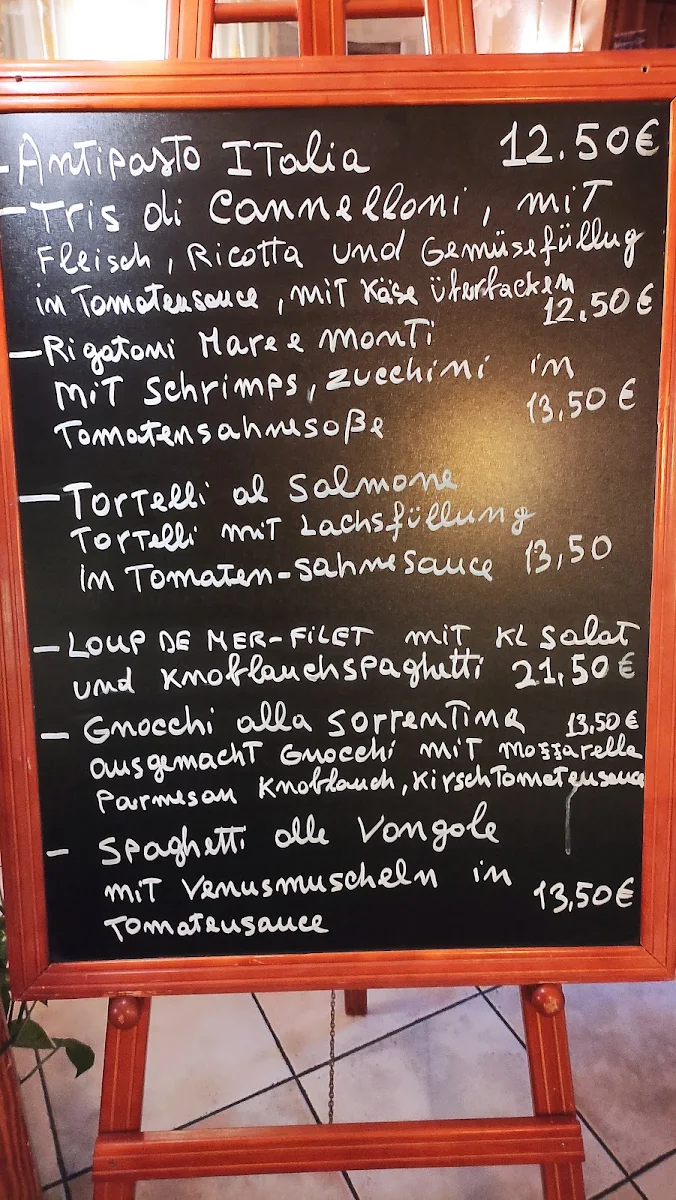 - Antipasto Italia 12.50€
- Tris di Cannelloni, mit
Fleisch, Ricotta und Gemüsefüllug
in Tomatensauce, mit Käse überbacken
12.50€
- Rigatoni Mare e monti
mit Schrimps, Zucchini in
Tomatensahnesoße 13,50 €
- Tortelli al Salmone
Tortelli mit Lachsfüllung
in Tomaten-sahnesauce 13,50
- LOUP DE MER-FILET mit KL Salat
und Knoblauchspaghetti 21,50€
- Gnocchi alla Sorrentina 13,50€
ausgemacht Gnocchi mit mozzarella
Parmesan Knoblauch, Kirschtomatensauce
- Spaghetti alle Vongole
mit Venusmuscheln in 13,50€
Tomatensauce